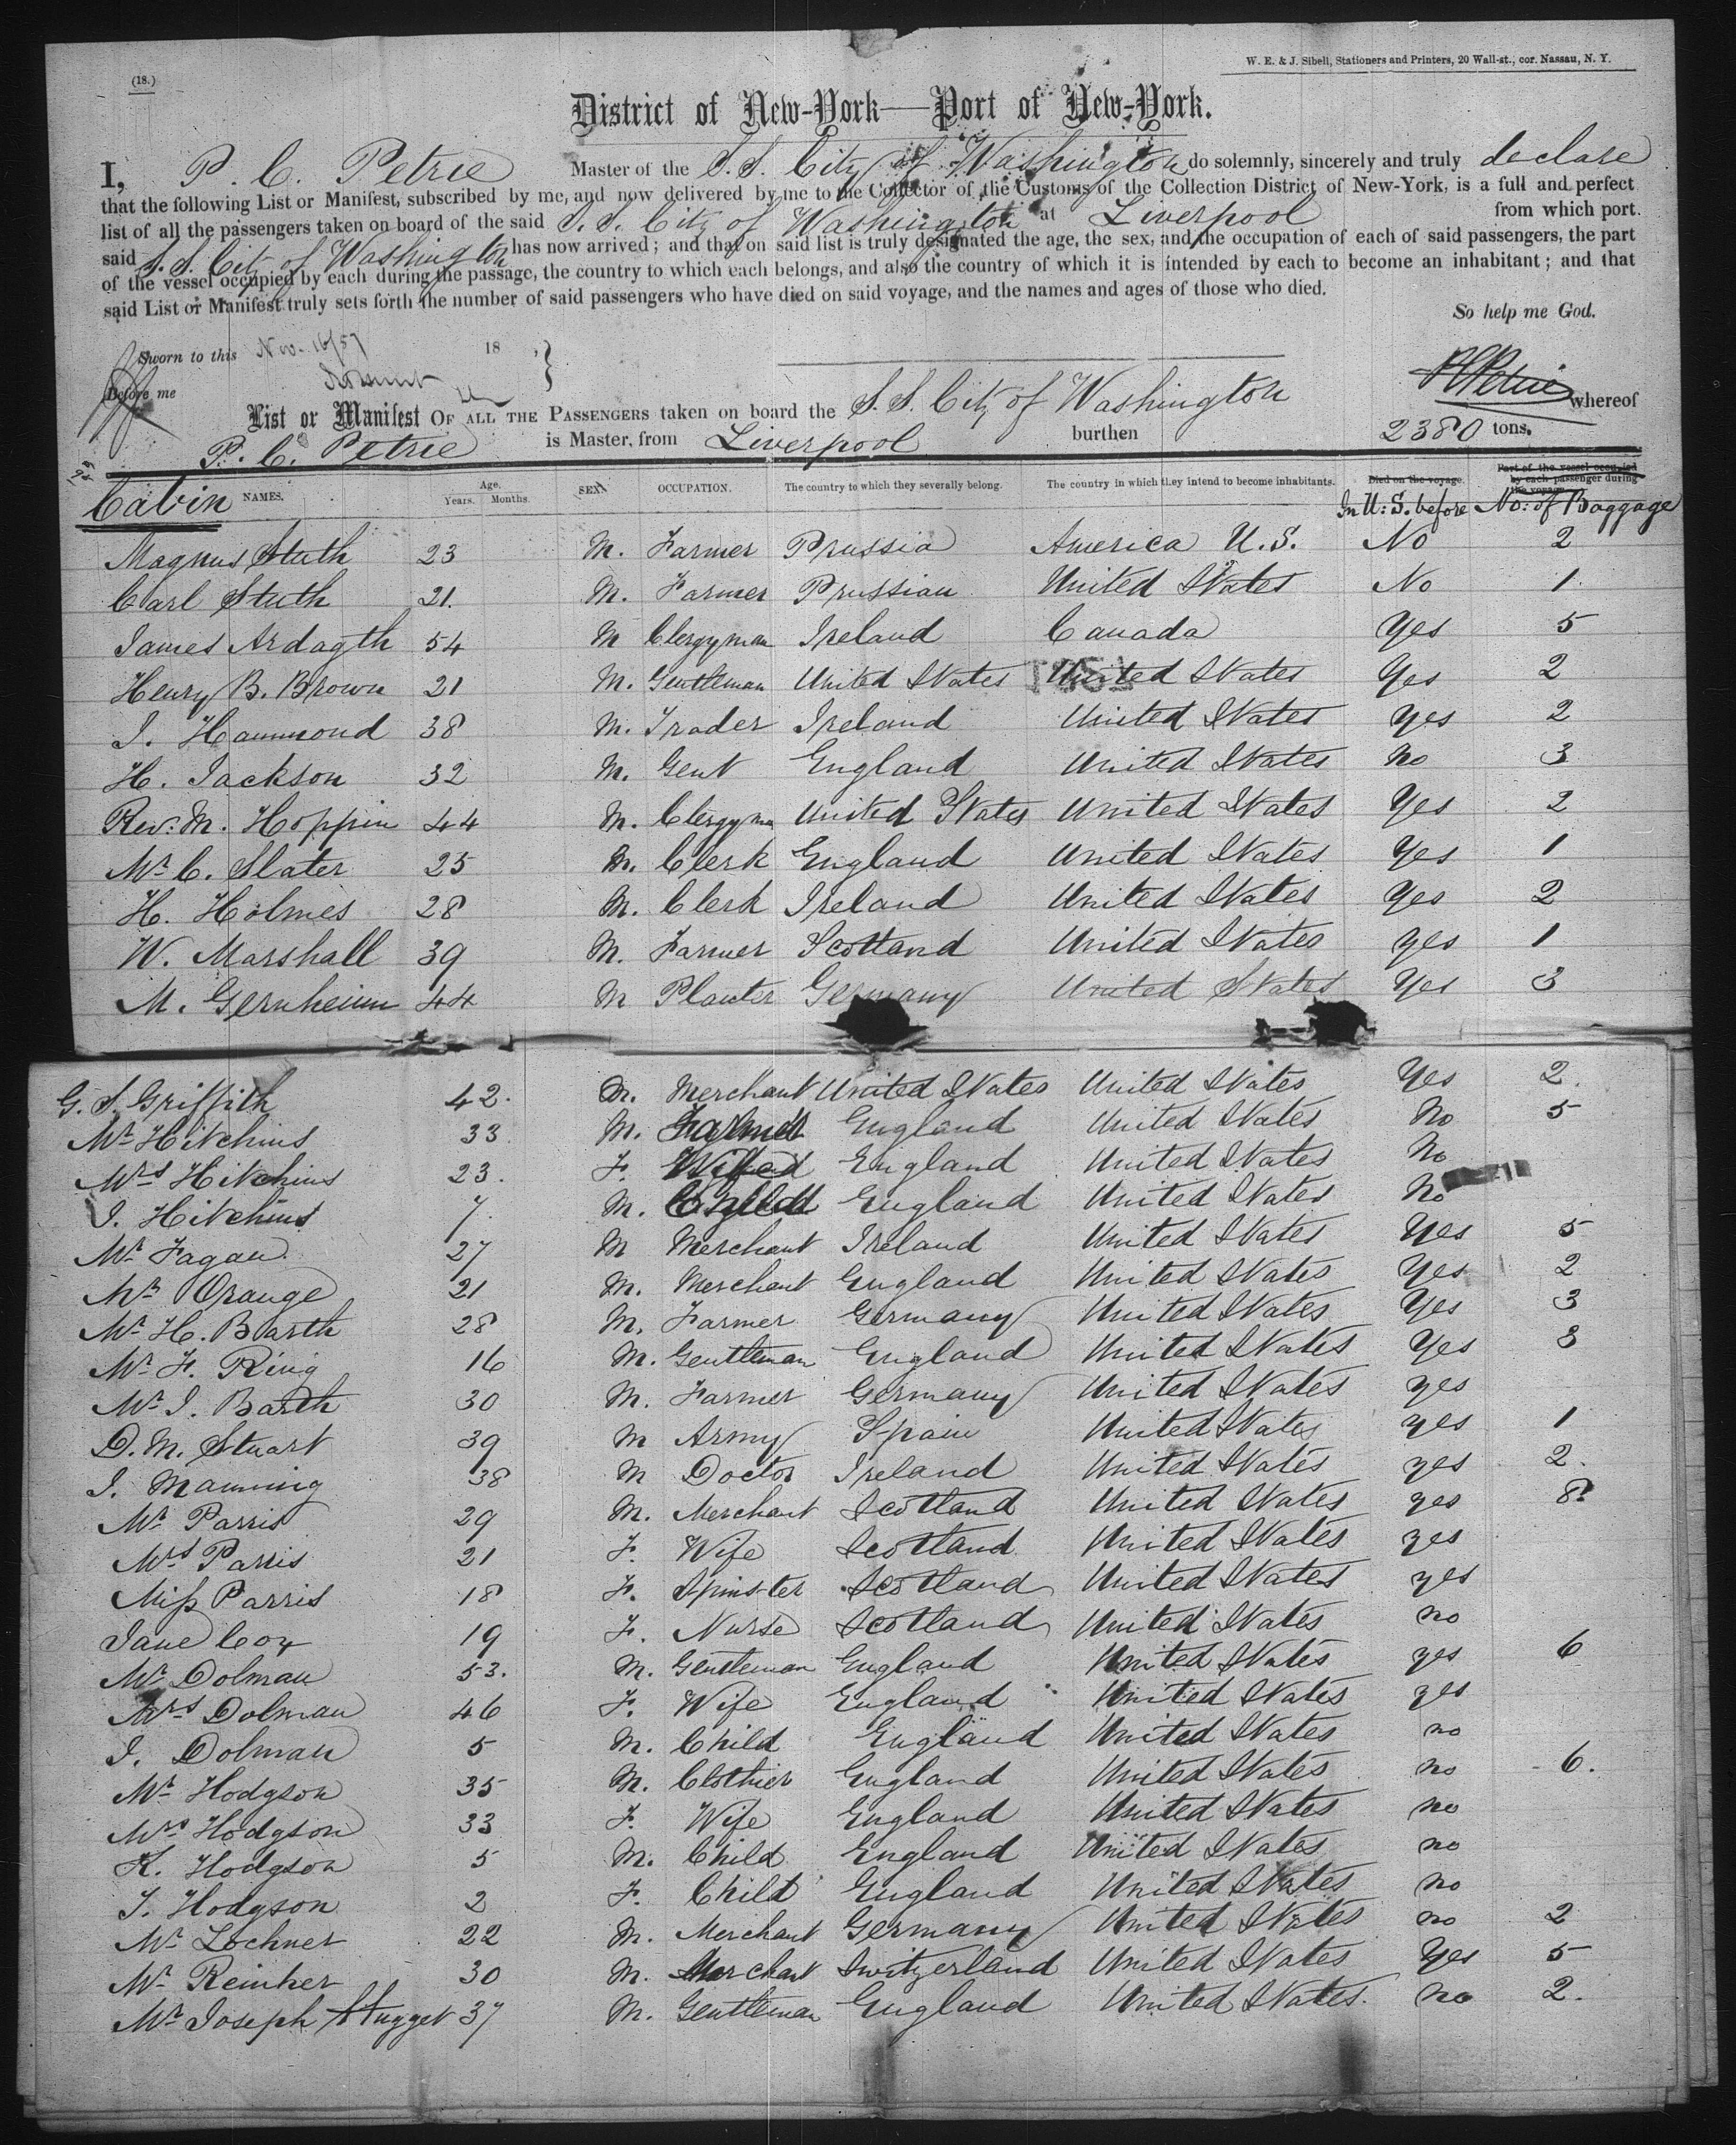 (18.)
W. E. & J. Sibell, Stationers and Printers, 20 Wall-st., cor. Nassau, N. Y.
District of New-York—Port of New-York.
I, P. C. Petrie Master of the S.S. City of Washington do solemnly, sincerely and truly declare
that the following List or Manifest, subscribed by me, and now delivered by me to the Collector of the Customs of the Collection District of New-York, is a full and perfect
list of all the passengers taken on board of the said S. S. City of Washington at Liverpool from which port.
said S. S. City of Washington has now arrived; and that on said list is truly designated the age, the sex, and the occupation of each of said passengers, the part
of the vessel occupied by each during the passage, the country to which each belongs, and also the country of which it is intended by each to become an inhabitant; and that
said List or Manifest truly sets forth the number of said passengers who have died on said voyage, and the names and ages of those who died.
So help me God.
Sworn to this Nov. 16/57 18
Before me
P C Petrie
List or Manifest OF ALL THE PASSENGERS taken on board the S. S. City of Washington whereof
P. C. Petrie is Master, from Liverpool burthen 2380 tons.
Cabin NAMES. Age. Years. Months. SEX. OCCUPATION. The country to which they severally belong. The country in which they intend to become inhabitants. Died on the voyage. Part of the vessel occupied by each passenger during the voyage.
In U. S. before No: of Baggage
Magnus Stuth 23 M. Farmer Prussia America U.S. No 2
Carl Stuth 21. M. Farmer Prussian United States No 1
James Ardagth 54 M Clergyman Ireland Canada Yes 5
Henry B. Brown 21 M. Gentleman United States United States Yes 2
J. Hammond 38 M. Trader Ireland United States Yes 2
H. Jackson 32 M. Gent England United States No 3
Rev. M. Hoppin 44 M. Clergyman United States United States Yes 2
Mr C. Slater 25 M. Clerk England United States Yes 1
H. Holmes 28 M. Clerk Ireland United States Yes 2
W. Marshall 39 M. Farmer Scotland United States Yes 1
M. Gernheimm 44 M Planter Germany United States Yes 3
G. S. Griffith 42. M. Merchant United States United States Yes 2.
Mr Hitchins 33 M. Farmer England United States No 5
Mrs Hitchins 23. F. Wife England United States No
J. Hitchins 7. M. Child England United States No
Mr Fagan. 27 M Merchant Ireland United States Yes 5
Mr Orange 21 M. Merchant England United States Yes 2
Mr H. Barth 28 M. Farmer Germany United States Yes 3
Mr F. Ring 16 M. Gentleman England United States Yes 3
Mr J. Barth 30 M. Farmer Germany United States yes
D. M. Stuart 39 M Army Spain United States yes 1
J. Manning 38 M Doctor Ireland United States yes 2.
Mr Parris 29 M. Merchant Scotland United States yes 8
Mrs Parris 21 F. Wife Scotland United States yes
Miss Parris 18 F. Spinster Scotland United States yes
Jane Cox 19 F. Nurse Scotland United States no
Mr Dolman 53. M. Gentleman England United States yes 6
Mrs Dolman 46 F. Wife England United States yes
J. Dolman 5 M. Child England United States no
Mr Hodgson 35 M. Clothier England United States no 6.
Mrs Hodgson 33 F. Wife England United States no
K. Hodgson 5 M. Child England United States no
J. Hodgson 2 F. Child England United States no
Mr Lochner 22 M. Merchant Germany United States no 2
Mr Reinher 30 M. Merchant Switzerland United States Yes 5
Mr Joseph 37 M. Gentleman England United States. no 2.